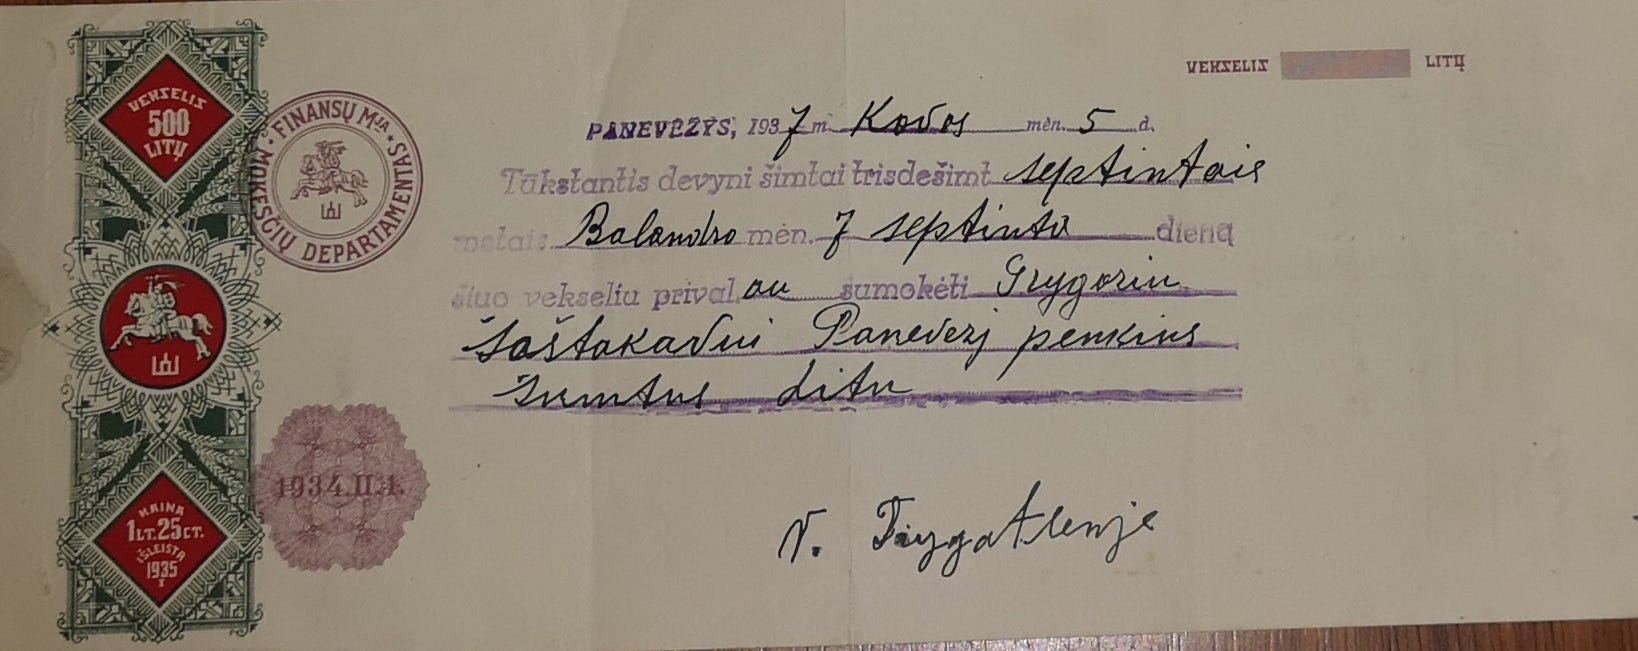 VEKSELIS
500
LITŲ
FINANSŲ M-JA
MOKESČIŲ DEPARTAMENTAS
1934.II.1.
KAINA
1 LT. 25 CT.
IŠLEISTA
1935
VEKSELIS LITŲ
PANEVĖŽYS, 1937 m. Kovos mėn. 5 d.
Tūkstantis devyni šimtai trisdešimt septintais
metais Balandro mėn. 7 septinta dieną
šiuo vekseliu prival au sumokėti Grygoriu
Šaštakavui Panevezj penkius
šumtus Litu
V.